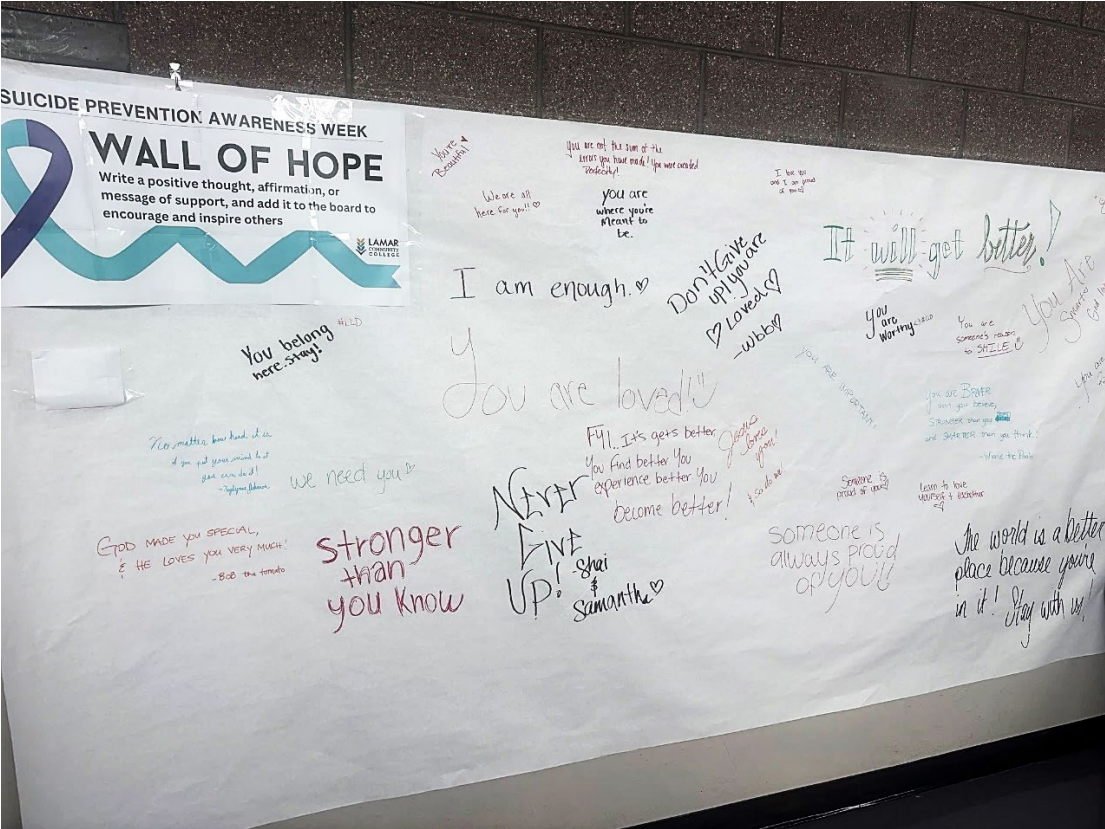 SUICIDE PREVENTION AWARENESS WEEK
WALL OF HOPE
Write a positive thought, affirmation, or
message of support, and add it to the board to
encourage and inspire others
LAMAR
COMMUNITY
COLLEGE
You're
Beautiful
You are not the sum of the
errors you have made! You were created
Perfectly!
I love you
and I am proud
of you!
We are all
here for you!!
you are
where you're
Meant to
be.
It will get better!
I am enough.
Don't Give
up! you are
Loved
-wbb
you
are
worthy
You are
someone's reason
to SMILE
You Are
#LLD
You belong
here. stay!
You are loved!!
YOU ARE IMPORTANT!
you are BRAVER
than you believe,
STRONGER than you
and SMARTER than you think!
-Winnie the Pooh
No matter how hard it is
if you put your mind to it
you can do it!
we need you
FYI.. It's gets better
You find better You
experience better You
become better!
Jesus
loves
you!
& so do me
Someone is
proud of you
Learn to love
yourself
NEVER
GIVE
UP!
-Shai
&
Samantha
GOD MADE YOU SPECIAL,
& HE LOVES YOU VERY MUCH!
-BOB the tomato
stronger
than
you Know
someone is
always proud
of you!!
The world is a better
place because you're
in it! Stay with us!